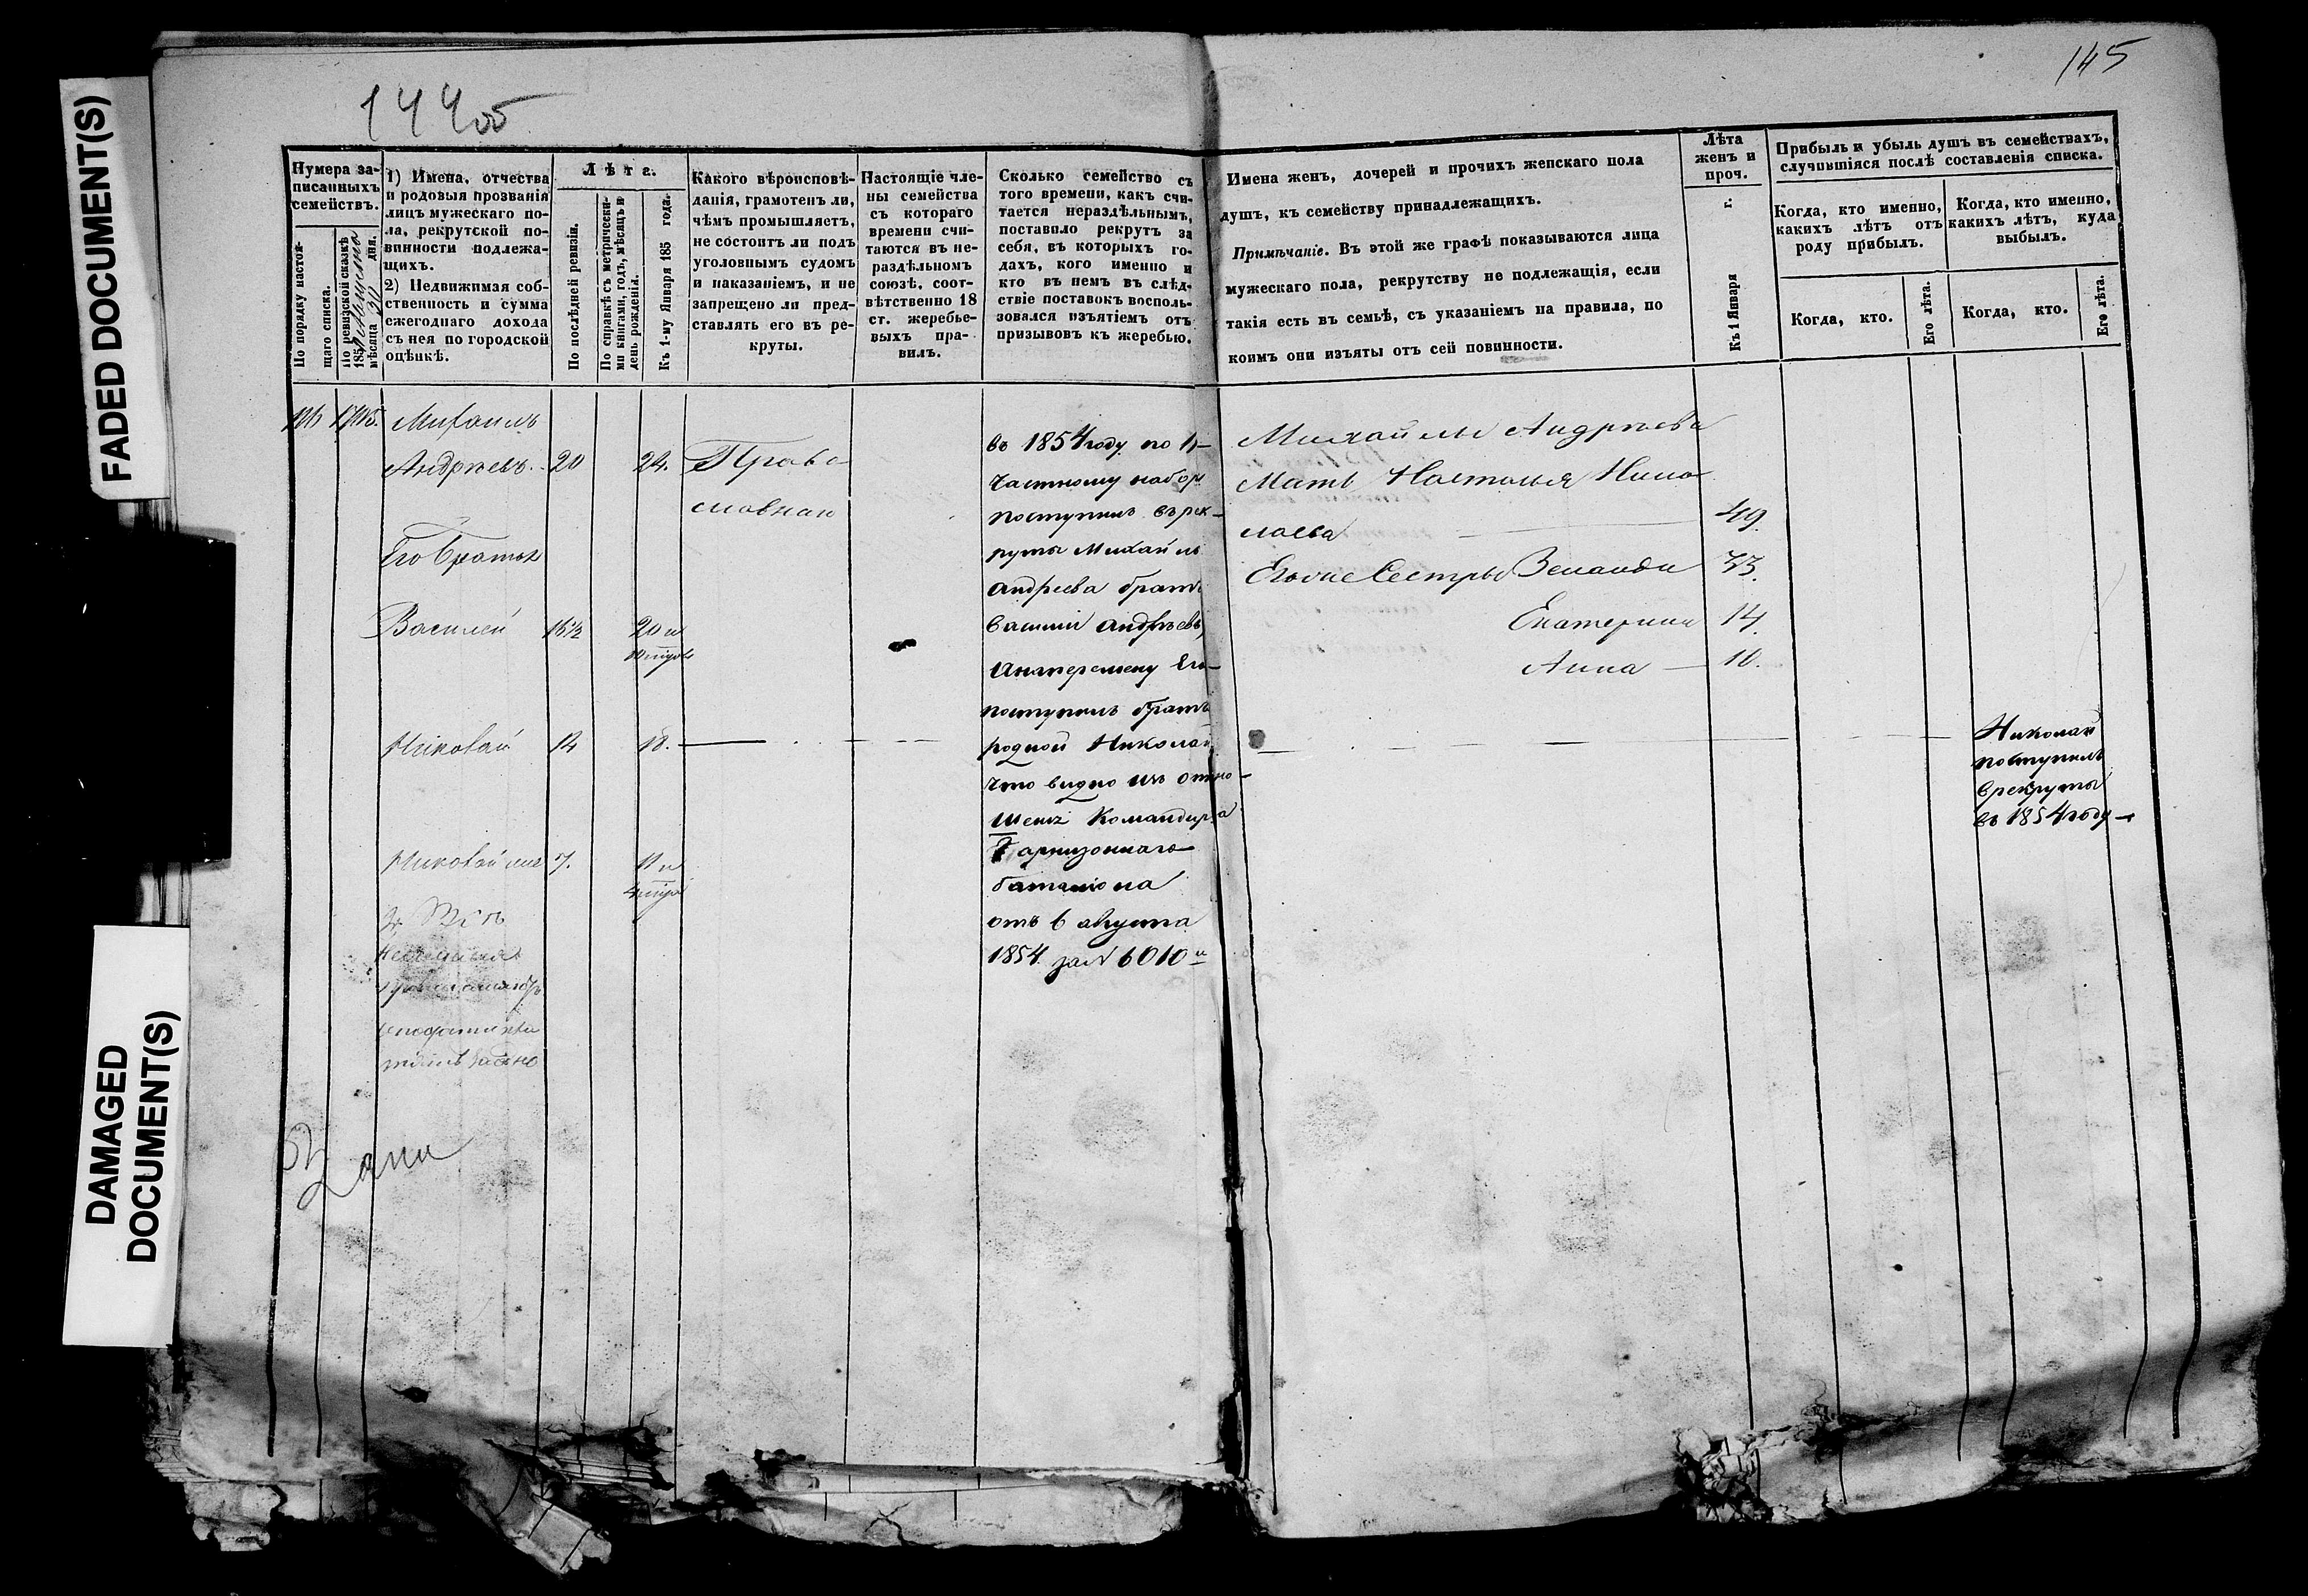 FADED DOCUMENT(S)
DAMAGED
DOCUMENT(S)
144об
145
Нумера за-
писанныхъ
семействъ.
По порядку настоя-
щаго списка.
По ревизской сказкѣ
185
мѣсяца 30 дня.
1) Имена, отчества
и родовыя прозванія
лицъ мужескаго по-
ла, рекрутской по-
винности подлежа-
щихъ.
2) Недвижимая соб-
ственность и сумма
ежегоднаго дохода
съ нея по городской
оцѣнкѣ.
Лѣта.
По послѣдней ревизіи.
По справкѣ съ метрически-
ми книгами, годъ, мѣсяцъ и
день рожденія.
Къ 1-му Января 185 года.
Какого вѣроисповѣ-
данія, грамотенъ ли,
чѣмъ промышляетъ,
не состоитъ ли подъ
уголовнымъ судомъ
и наказаніемъ, и не
запрещено ли пред-
ставлять его въ ре-
круты.
Настоящіе чле-
ны семейства
съ котораго
времени счи-
таются въ не-
раздѣльномъ
союзѣ, соот-
вѣтственно 18
ст. жеребье-
выхъ пра-
вилъ.
Сколько семейство съ
того времени, какъ счи-
тается нераздѣльнымъ,
поставило рекрутъ за
себя, въ которыхъ го-
дахъ, кого именно и
кто въ немъ въ слѣд-
ствіе поставокъ восполь-
зовался изъятіемъ отъ
призывовъ къ жеребью.
Имена женъ, дочерей и прочихъ женскаго пола
душъ, къ семейству принадлежащихъ.
Примѣчаніе. Въ этой же графѣ показываются лица
мужескаго пола, рекрутству не подлежащія, если
такія есть въ семьѣ, съ указаніемъ на правила, по
коимъ они изъяты отъ сей повинности.
Лѣта
женъ и
проч.
Къ 1 Января г.
Прибыль и убыль душъ въ семействахъ,
случившіяся послѣ составленія списка.
Когда, кто именно,
какихъ лѣтъ отъ
роду прибылъ.
Когда, кто именно,
какихъ лѣтъ, куда
выбылъ.
Когда, кто.
Его лѣта.
Когда, кто.
Его лѣта.
Михаилъ
Андрѣевъ. 20 24.
Право
славнаго
Его братья
Василей 16½ 20 и
Николай 12 18.
Николай же 7. 11 и
въ 1854 году по 11-
частному набору
поступилъ въ рек-
руты Михайлы
Андреева братъ
Василій Андрѣевъ,
Инаперемену Его
поступилъ братъ
родной Николай
что видно изъ отно-
шенія Командира
Гарнизоннаго
баталіона
отъ 6 августа
1854. за № 6010
Михайлы Андрѣева
Мать Настасья Нико-
лаева 49.
Его же Сестры 33.
Екатерина 14.
Анна 10.
Николай
поступилъ
в рекруты
въ 1854 году